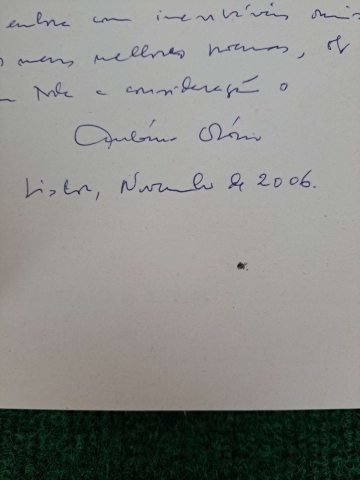 embora com inevitáveis omis
meus melhores poemas, of
toda a consideração o
António Osório
Lisboa, Novembro de 2006.